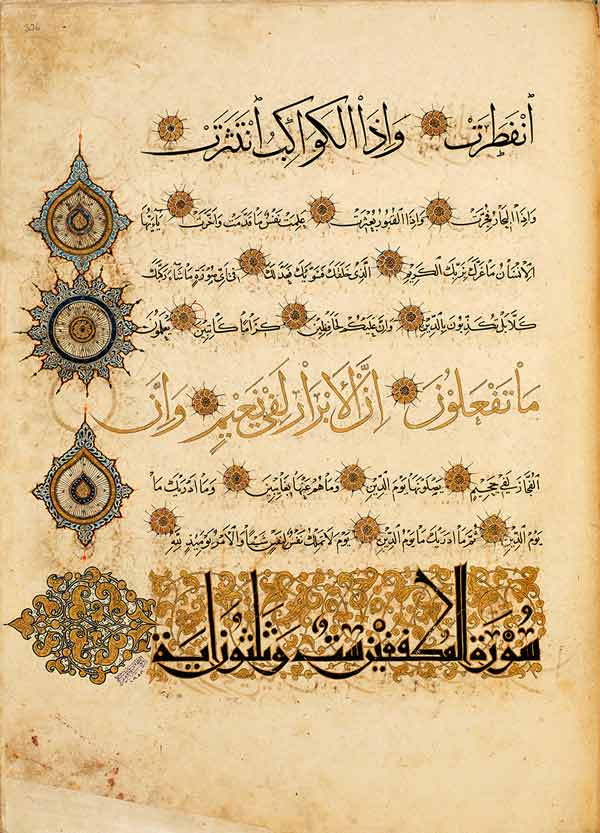 اَنْفَطَرَتْ وَاِذَا الْكَوَاكِبُ انْتَثَرَتْ
وَاِذَا الْبِحَارُ فُجِّرَتْ وَاِذَا الْقُبُورُ بُعْثِرَتْ عَلِمَتْ نَفْسٌ مَا قَدَّمَتْ وَاَخَّرَتْ يَا اَيُّهَا
الْاِنْسَانُ مَا غَرَّكَ بِرَبِّكَ الْكَرِيمِ الَّذِي خَلَقَكَ فَسَوّٰيكَ فَعَدَلَكَ فِي اَيِّ صُورَةٍ مَا شَاءَ رَكَّبَكَ
كَلَّا بَلْ تُكَذِّبُونَ بِالدِّينِ وَاِنَّ عَلَيْكُمْ لَحَافِظِينَ كِرَامًا كَاتِبِينَ يَعْلَمُونَ
مَا تَفْعَلُونَ اِنَّ الْاَبْرَارَ لَفِي نَعِيمٍ وَاِنَّ
الْفُجَّارَ لَفِي جَحِيمٍ يَصْلَوْنَهَا يَوْمَ الدِّينِ وَمَا هُمْ عَنْهَا بِغَائِبِينَ وَمَا اَدْرٰيكَ مَا
يَوْمُ الدِّينِ ثُمَّ مَا اَدْرٰيكَ مَا يَوْمُ الدِّينِ يَوْمَ لَا تَمْلِكُ نَفْسٌ لِنَفْسٍ شَيْئًا وَالْاَمْرُ يَوْمَئِذٍ لِلّٰهِ
سُورَة المطففين ست وَثلثون اية